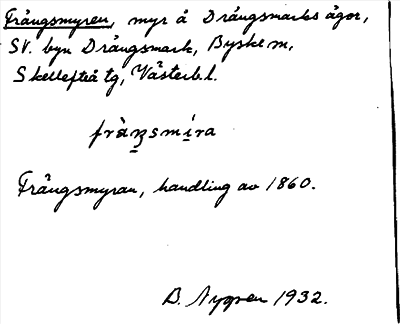 Trångsmyren, myr å Drängsmarks ägor,
SV. byn Drängsmark, Byske sn,
Skellefteå tg, Västerb.l.
Trångsmyran, handling av 1860.
B. Nygren 1932.